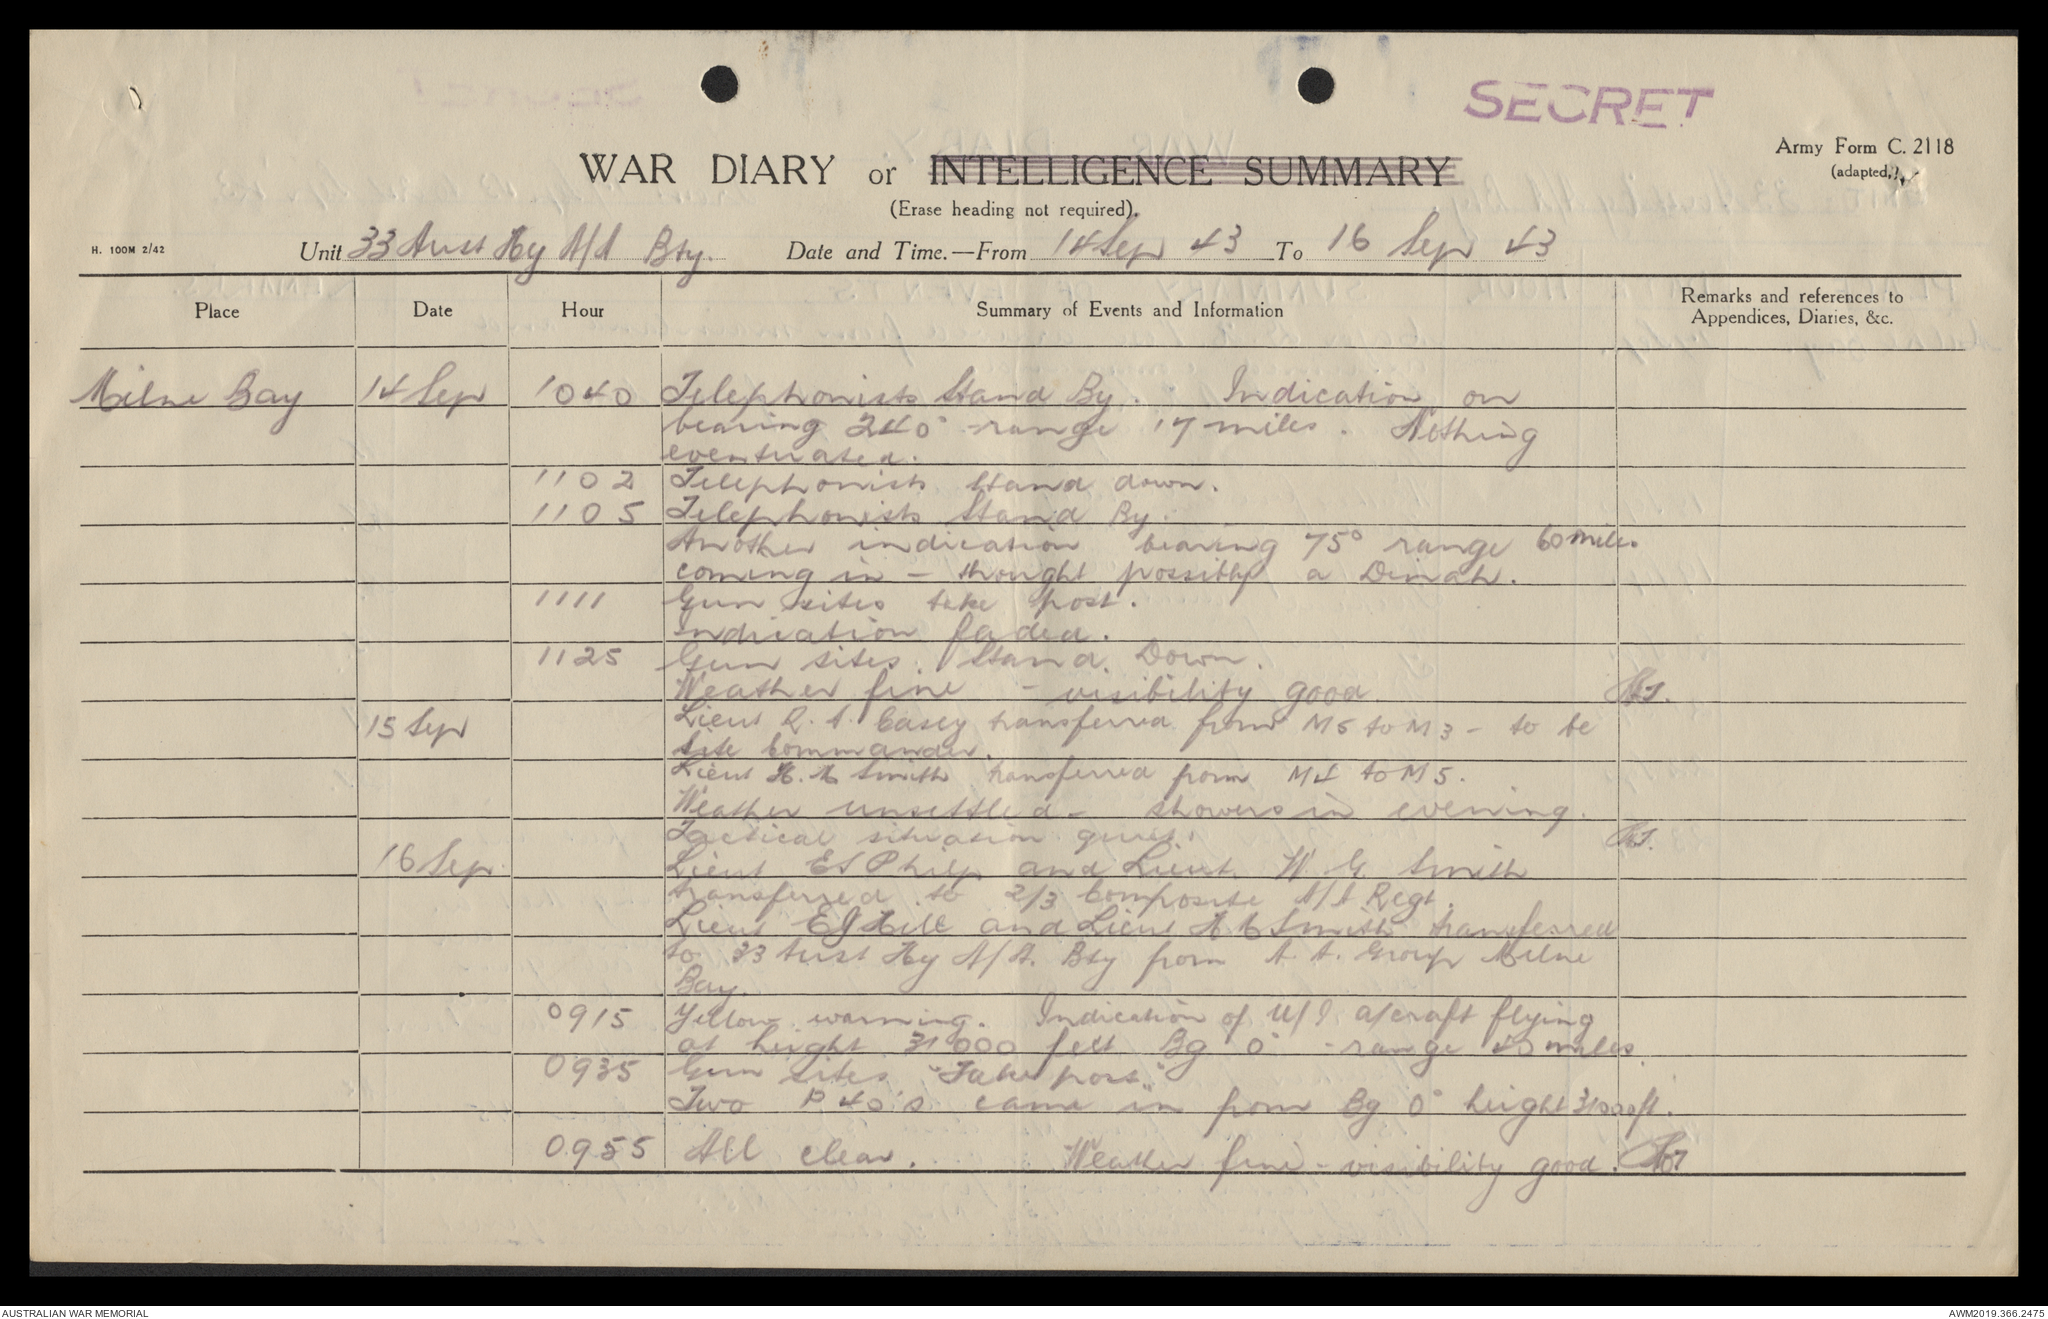 SECRET
Army Form C. 2118
(adapted.)
WAR DIARY or INTELLIGENCE SUMMARY
(Erase heading not required).
H. 100M 2/42
Unit 33 Aust Hy A/A Bty. Date and Time.—From 14 Sep 43 To 16 Sep 43
Place Date Hour Summary of Events and Information Remarks and references to
Appendices, Diaries, &c.
Milne Bay 14 Sep 1040 Telephonists Stand By. Indication on
bearing 240° range 17 miles. Nothing
eventuated.
1102 Telephonists stand down.
1105 Telephonists Stand By.
Another indication bearing 75° range 60 miles
coming in - thought possibly a Dinah.
1111 Gun sites take post.
Indication faded.
1125 Gun sites Stand Down.
Weather fine - visibility good.
15 Sep Lieut R. A. Casey transferred from M5 to M3 - to be
Site Commander.
Lieut H. M Smith transferred from M4 to M5.
Weather unsettled - showers in evening.
Tactical situation quiet.
16 Sep Lieut ES Philp and Lieut W. G. Smith
transferred to 2/3 Composite A/A Regt.
Lieut EJ Hill and Lieut H M Smith transferred
to 33 Aust Hy A/A. Bty from A. A. Group Milne
Bay.
0915 Yellow warning. Indication of U/I a/craft flying
at height 31000 feet Bg 0° - range 45 miles.
0935 Gun sites "Take post."
Two P40's came in from Bg 0° height 31000 ft.
0955 All clear. Weather fine - visibility good.
AUSTRALIAN WAR MEMORIAL AWM2019.366.2475